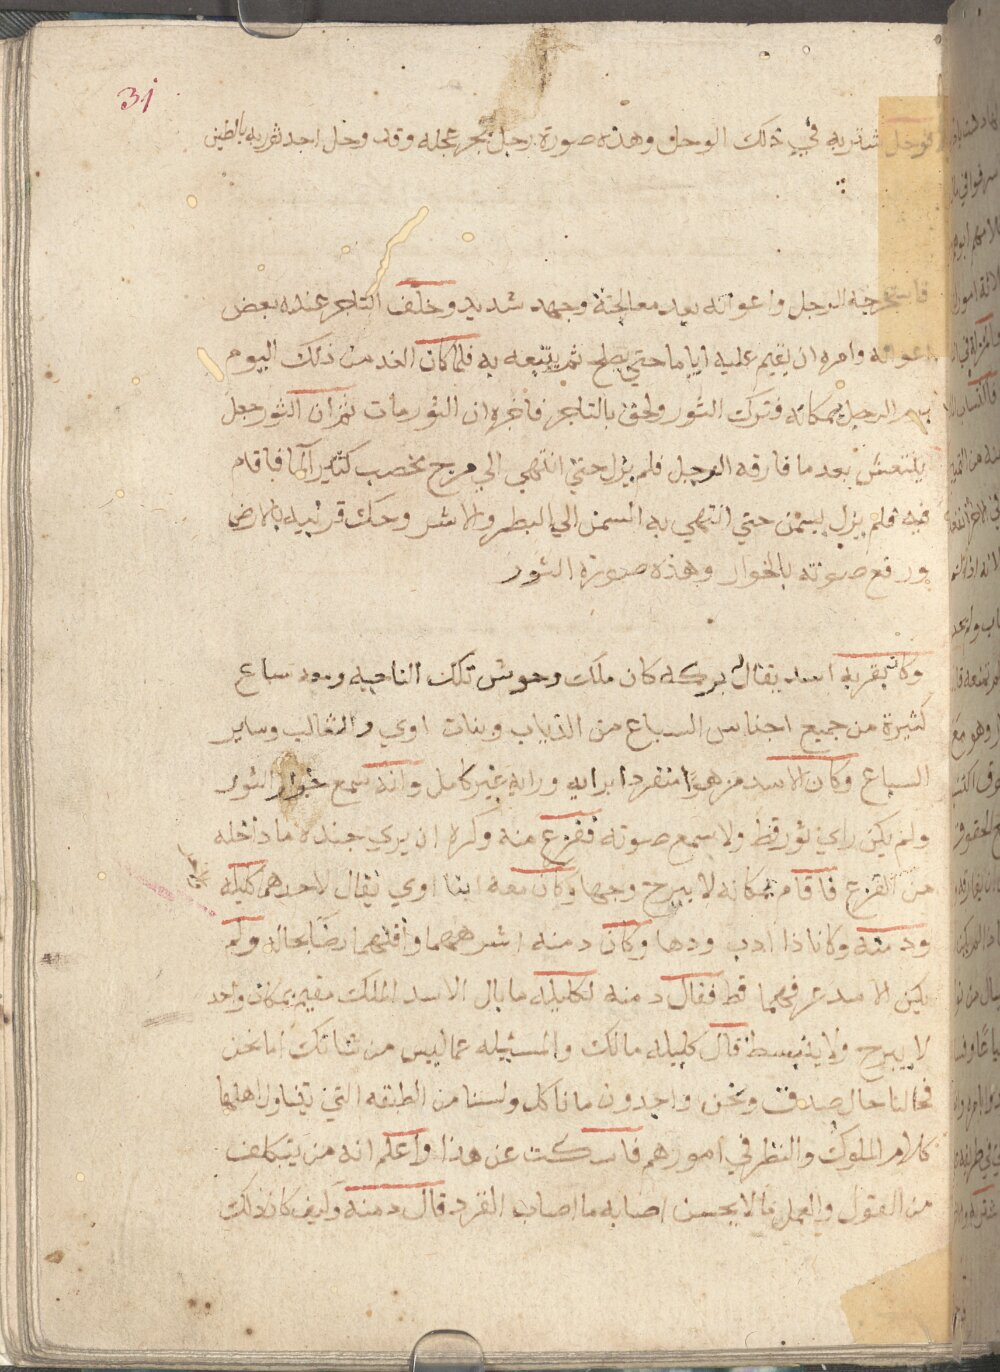 31
فوحل شتربه في ذلك الوحل وهذه صورة رجل يجر عجله وقد وحل احد ثوريه بالطين
فاستخرجه الرجل واعوانه بعد معالجة وجهد شديد وخلف التاجر عنده بعض
اعوانه وامره ان يقيم عليه اياما حتي يصلح ثم يتبعه به فلما كان الغد من ذلك اليوم
الرجل بمكانه فترك الثور ولحق بالتاجر فاخبره ان الثور مات ثم ان الثور جعل
ينتعش بعد ما فارقه الرجل فلم يزل حتي انتهي الي مرج مخصب كثير الما فاقام
فيه فلم يزل يسمن حتي انتهي به السمن الي البطر والاشر وحك قرنيه بالارض
ورفع صوته بالخوار وهذه صورة الثور
وكان بقربه اسد يقال له بركه كان ملك وحوش تلك الناحيه ومعه سباع
كثيرة من جميع اجناس السباع من الذياب وبنات اوي والثعالب وساير
السباع وكان الاسد مزهوا منفردا برايه ورايه غير كامل وانه سمع خوار الثور
ولم يكن راي ثور قط ولا سمع صوته ففزع منه وكره ان يري جنده ما داخله
من الفزع فاقام بمكانه لا يبرح وجها وكان معه ابنا اوي يقال لاحدهما كليله
ودمنه وكانا ذا ادب ودها وكان دمنه اشرههما واقلهما رضا بحاله ولم
يكن الاسد عرفهما قط فقال دمنه لكليله ما بال الاسد الملك مقيم بمكان واحد
لا يبرح ولا ينبسط قال كليله مالك والمسئيله عما ليس من شانك اما نحن
فحالنا حال صدق ونحن واجدون ما ناكل ولسنا من الطبقه التي يتناول اهلها
كلام الملوك والنظر في امورهم فاسكت عن هذا واعلم انه من يتكلف
من القول والعمل ما لا يحسن اصابه ما اصاب القرد قال دمنه وكيف كان ذلك